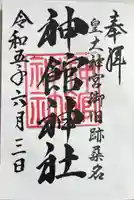 奉拝
皇大神宮御旧跡桑名
神館神社
令和五年六月三日